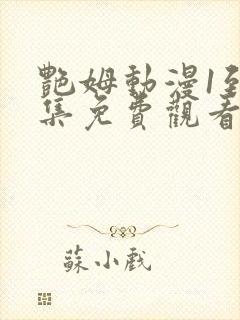 艷姆動漫1至
集免費觀看
蘇小戲